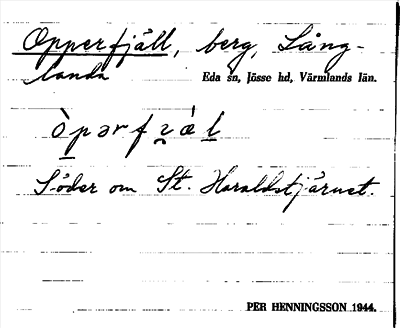 Opperfjäll, berg, Lång-
landa Eda sn, Jösse hd, Värmlands län.
Söder om St. Haraldstjärnet.
PER HENNINGSSON 1944.